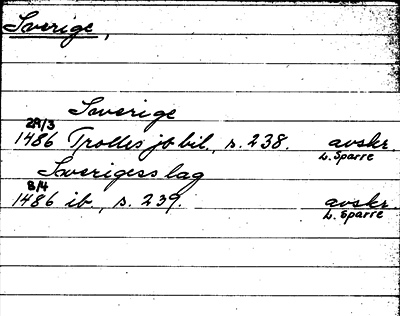 Sverige,
Swerige
29/3
1486 Trolles jb bil, s. 238. avskr.
L. Sparre
Swerigess lag
8/4
1486 ib., s. 239. avskr.
L. Sparre